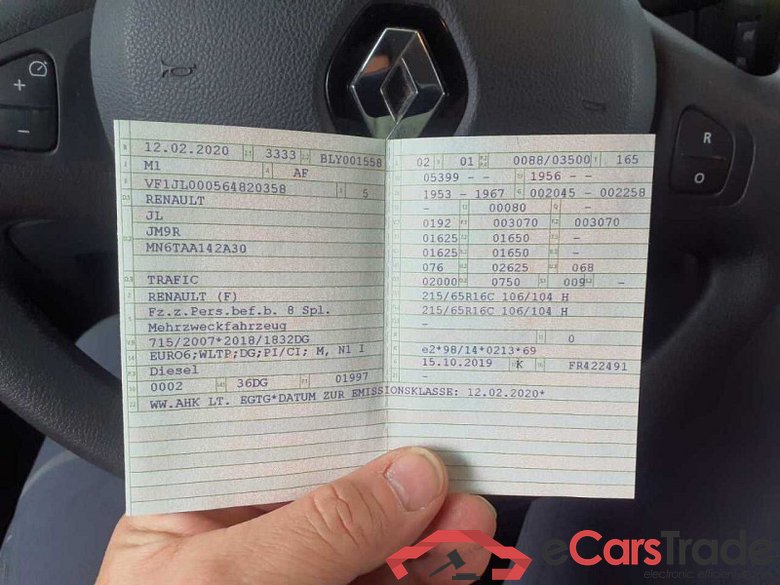 12.02.2020 3333 BLY001558
M1 AF
VF1JL000564820358 5
RENAULT
JL
JM9R
MN6TAA142A30
TRAFIC
RENAULT (F)
Fz.z.Pers.bef.b. 8 Spl.
Mehrzweckfahrzeug
715/2007*2018/1832DG
EURO6;WLTP;DG;PI/CI; M, N1 I
Diesel
0002 36DG 01997
WW.AHK LT. EGTG*DATUM ZUR EMISSIONSKLASSE: 12.02.2020*
02 01 0088/03500 165
05399 - - 1956 - -
1953 - 1967 002045 - 002258
- 00080 -
0192 003070 003070
01625 01650 -
01625 01650 -
076 02625 068
02000 0750 009 -
215/65R16C 106/104 H
215/65R16C 106/104 H
-
0
e2*98/14*0213*69
15.10.2019 K FR422491
-
+
-
R
O
eCarsTrade
electronic efficient